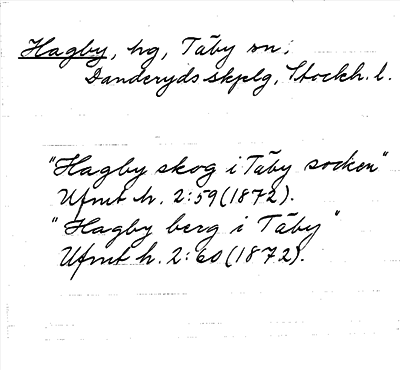 Hagby, hg, Täby sn;
Danderyds skplg, Stockh. l.
"Hagby skog i Täby socken"
Ufmt h. 2:59 (1872).
"Hagby berg i Täby"
Ufmt h. 2:60 (1872).